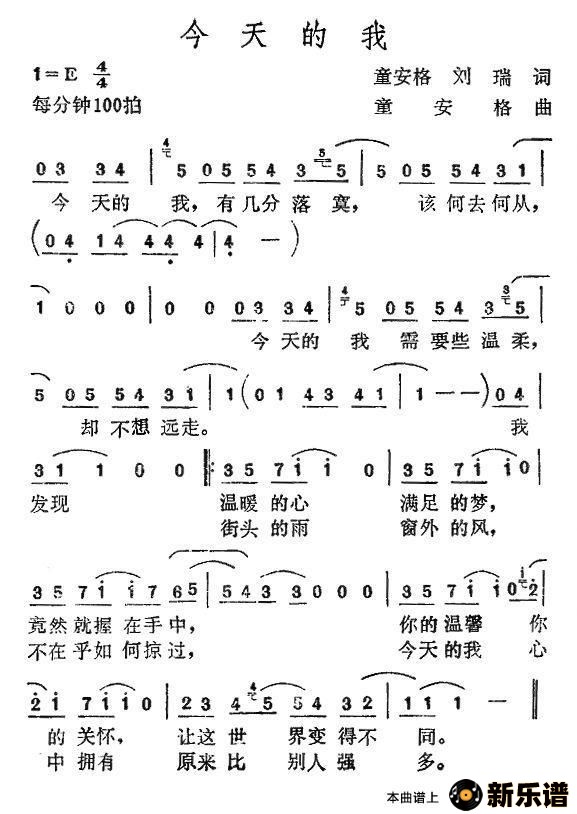 今天的我
1=E 4/4 童安格 刘瑞 词
每分钟100拍 童安格 曲
03 34 | 5 05 54 3 5 | 5 05 54 31 |
今 天的 我, 有 几分 落 寞, 该 何去 何从,
(04 14 44 4 | 4 —)
1 0 0 0 | 0 0 03 34 | 5 05 54 3 5 |
今 天的 我 需 要些 温 柔,
5 05 54 31 | 1 (01 43 41 | 1 — —) 04 |
却 不想 远走。 我
31 1 0 0 |: 35 71 1 0 | 35 71 10 |
发现 温暖 的心 满足 的梦,
街头 的雨 窗外 的风,
35 71 17 65 | 54 3 3 0 0 0 | 35 71 10 2 |
竟然 就握 在手 中, 你的 温馨 你
不在 乎如 何掠 过, 今天 的我 心
21 71 10 | 23 45 54 32 | 11 1 — ‖
的 关怀, 让这 世 界变 得不 同。
中 拥有 原来 比 别人 强 多。
本曲谱上 新乐谱